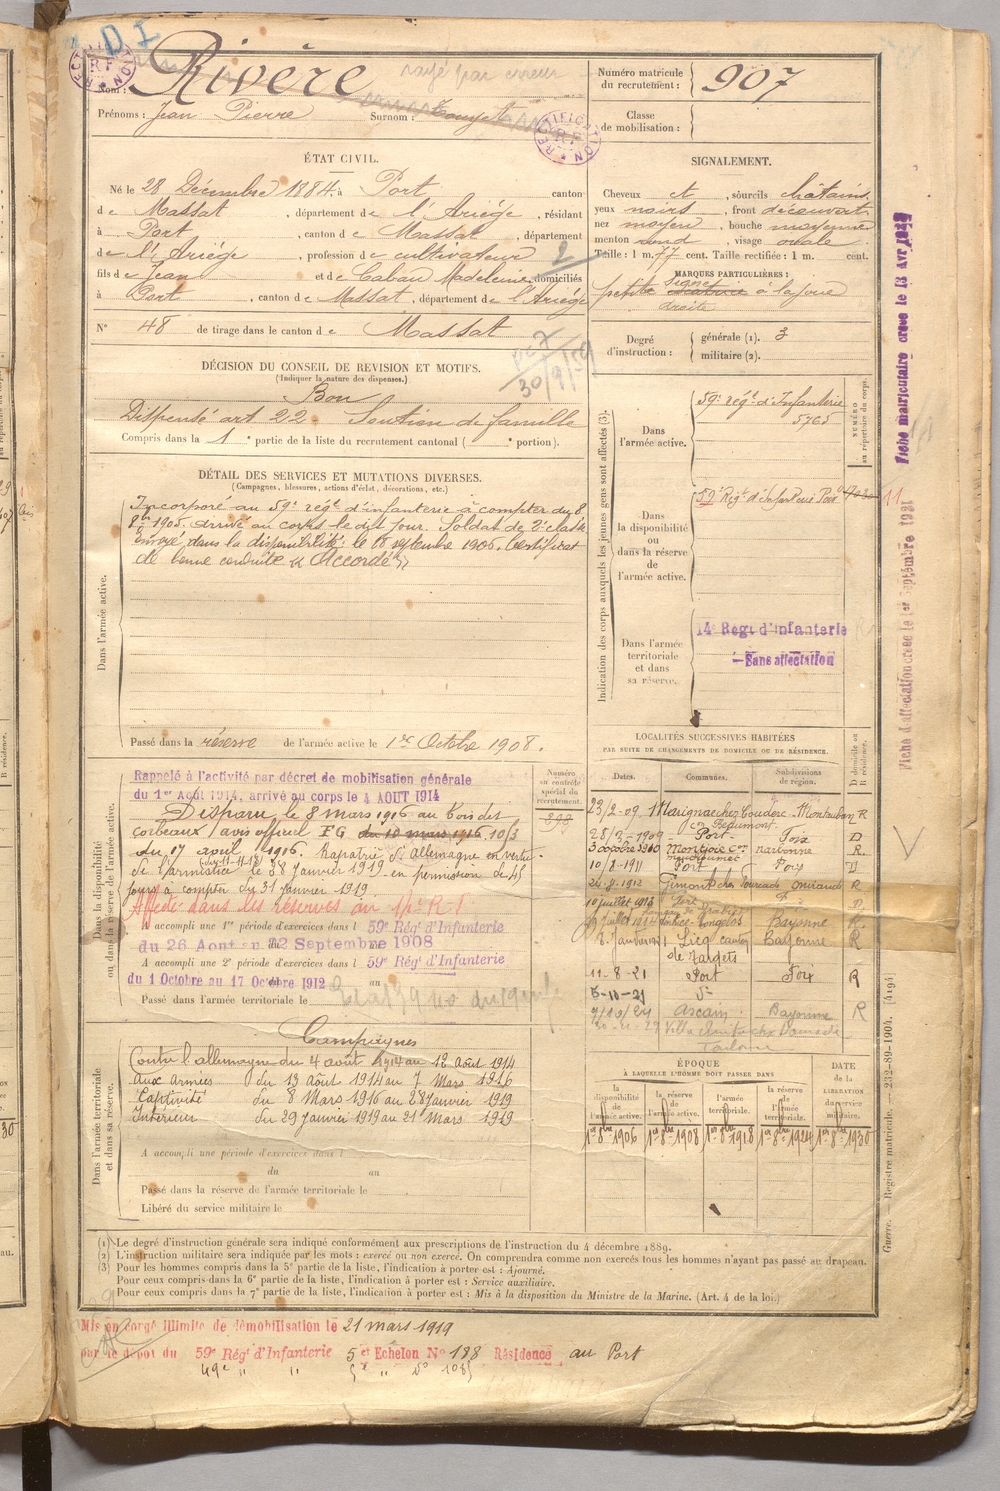 D I
RECTIFICATION RF
Nom : Rivère
rayé par erreur
Prénoms : Jean Pierre Surnom :
RECTIFICATION RF
Numéro matricule du recrutement : 907
Classe de mobilisation :
ÉTAT CIVIL.
Né le 28 Décembre 1884, à Port, canton
de Massat, département de l'Ariége, résidant
à Port, canton de Massat, département
de l'Ariége, profession de cultivateur
fils de Jean et de Cabau Madeleine, domiciliés
à Port, canton de Massat, département de l'Ariége
N° 48 de tirage dans le canton de Massat
2
30/9/59
SIGNALEMENT.
Cheveux et, sourcils châtains
yeux noirs, front découvert
nez moyen, bouche moyenne
menton rond, visage ovale.
Taille : 1 m. 77 cent. Taille rectifiée : 1 m. cent.
MARQUES PARTICULIÈRES :
petite cicatrice signe à la joue
droite
Degré d'instruction : générale (1). 3
militaire (2).
DÉCISION DU CONSEIL DE REVISION ET MOTIFS.
(Indiquer la nature des dispenses.)
Bon
Dispensé art 22. Soutien de famille
Compris dans la 1e partie de la liste du recrutement cantonal ( e portion).
DÉTAIL DES SERVICES ET MUTATIONS DIVERSES.
(Campagnes, blessures, actions d'éclat, décorations, etc.)
Dans l'armée active.
Incorporé au 59e régt d'infanterie à compter du 8
8bre 1905. arrivé au corps le dit jour. Soldat de 2e classe
Envoyé dans la disponibilité le 18 septembre 1906. Certificat
de bonne conduite « Accordé »
Passé dans la réserve de l'armée active le 1er Octobre 1908.
Indication des corps auxquels les jeunes gens sont affectés (3).
NUMÉRO au répertoire du corps.
Dans l'armée active.
59e régt d'Infanterie
5765
Dans la disponibilité ou dans la réserve de l'armée active.
59e Régt d'infanterie
Dans l'armée territoriale et dans sa réserve.
14e Régt d'Infanterie
— Sans affectation
Fiche matriculaire créée le 13 Avr
Fiche d'affectation créée le 1er Septembre 1931
Dans la disponibilité ou dans la réserve de l'armée active.
Numéro au contrôle spécial du recrutement.
Rappelé à l'activité par décret de mobilisation générale
du 1er Août 1914, arrivé au corps le 4 AOUT 1914
Disparu le 8 mars 1916 au bois des
corbeaux (avis officiel FG du 10 mars 1916. 10/3
du 17 avril 1916. Rapatrié d'Allemagne en vertu
de l'armistice (du 11-11-18) le 28 Janvier 1919. en permission de 45
jours à compter du 31 janvier 1919
Affecté dans les réserves au 14e R I
A accompli une 1re période d'exercices dans l 59e Rég't d'Infanterie
du 26 Aout au 12 Septembre 1908
A accompli une 2e période d'exercices dans l 59e Rég't d'Infanterie
du 1 Octobre au 17 Octobre 1912
Passé dans l'armée territoriale le
LOCALITÉS SUCCESSIVES HABITÉES
PAR SUITE DE CHANGEMENTS DE DOMICILE OU DE RÉSIDENCE.
D domicile ou R résidence.
Dates. Communes. Subdivisions de région.
23/2-09 Montauban R
con Beaumont
28/2-1909 Port- Foix D
3 octobre 1910 Montjoie con Narbonne R
10/8-1911 Port Foix D
24-8-1912 Gimont Mirande R
10 juillet 1913 Port D
Juillet 1914 Bayonne R
8 Janvier 1921 Licq canton Bayonne R
de Tardets
11-8-21 Port Foix R
5-10-21 d°
9/10/24 Ascain Bayonne R
Toulouse
Dans l'armée territoriale et dans sa réserve.
Campagnes
Contre l'allemagne du 4 août 1914 au 12 Août 1914
Aux armées du 13 Août 1914 au 7 Mars 1916
Captivité du 8 Mars 1916 au 28 Janvier 1919
Intérieur du 29 Janvier 1919 au 21 Mars 1919
A accompli une période d'exercices dans l
du au
Passé dans la réserve de l'armée territoriale le
Libéré du service militaire le
ÉPOQUE
À LAQUELLE L'HOMME DOIT PASSER DANS
la disponibilité de l'armée active.
la réserve de l'armée active.
l'armée territoriale.
la réserve de l'armée territoriale.
DATE de la LIBÉRATION du service militaire.
1er 8bre 1906 1er 8bre 1908 1er 8bre 1918 1er 8bre 1924 1er 8bre 1930
Guerre. — Registre matricule. — 232-89-1904. [4194]
(1) Le degré d'instruction générale sera indiqué conformément aux prescriptions de l'instruction du 4 décembre 1889.
(2) L'instruction militaire sera indiquée par les mots : exercé ou non exercé. On comprendra comme non exercés tous les hommes n'ayant pas passé au drapeau.
(3) Pour les hommes compris dans la 5e partie de la liste, l'indication à porter est : Ajourné.
Pour ceux compris dans la 6e partie de la liste, l'indication à porter est : Service auxiliaire.
Pour ceux compris dans la 7e partie de la liste, l'indication à porter est : Mis à la disposition du Ministre de la Marine. (Art. 4 de la loi.)
Mis en congé illimité de démobilisation le 21 mars 1919
par le dépôt du 59e Rég't d'Infanterie 5e Echelon N° 188 Résidence au Port
49e " "